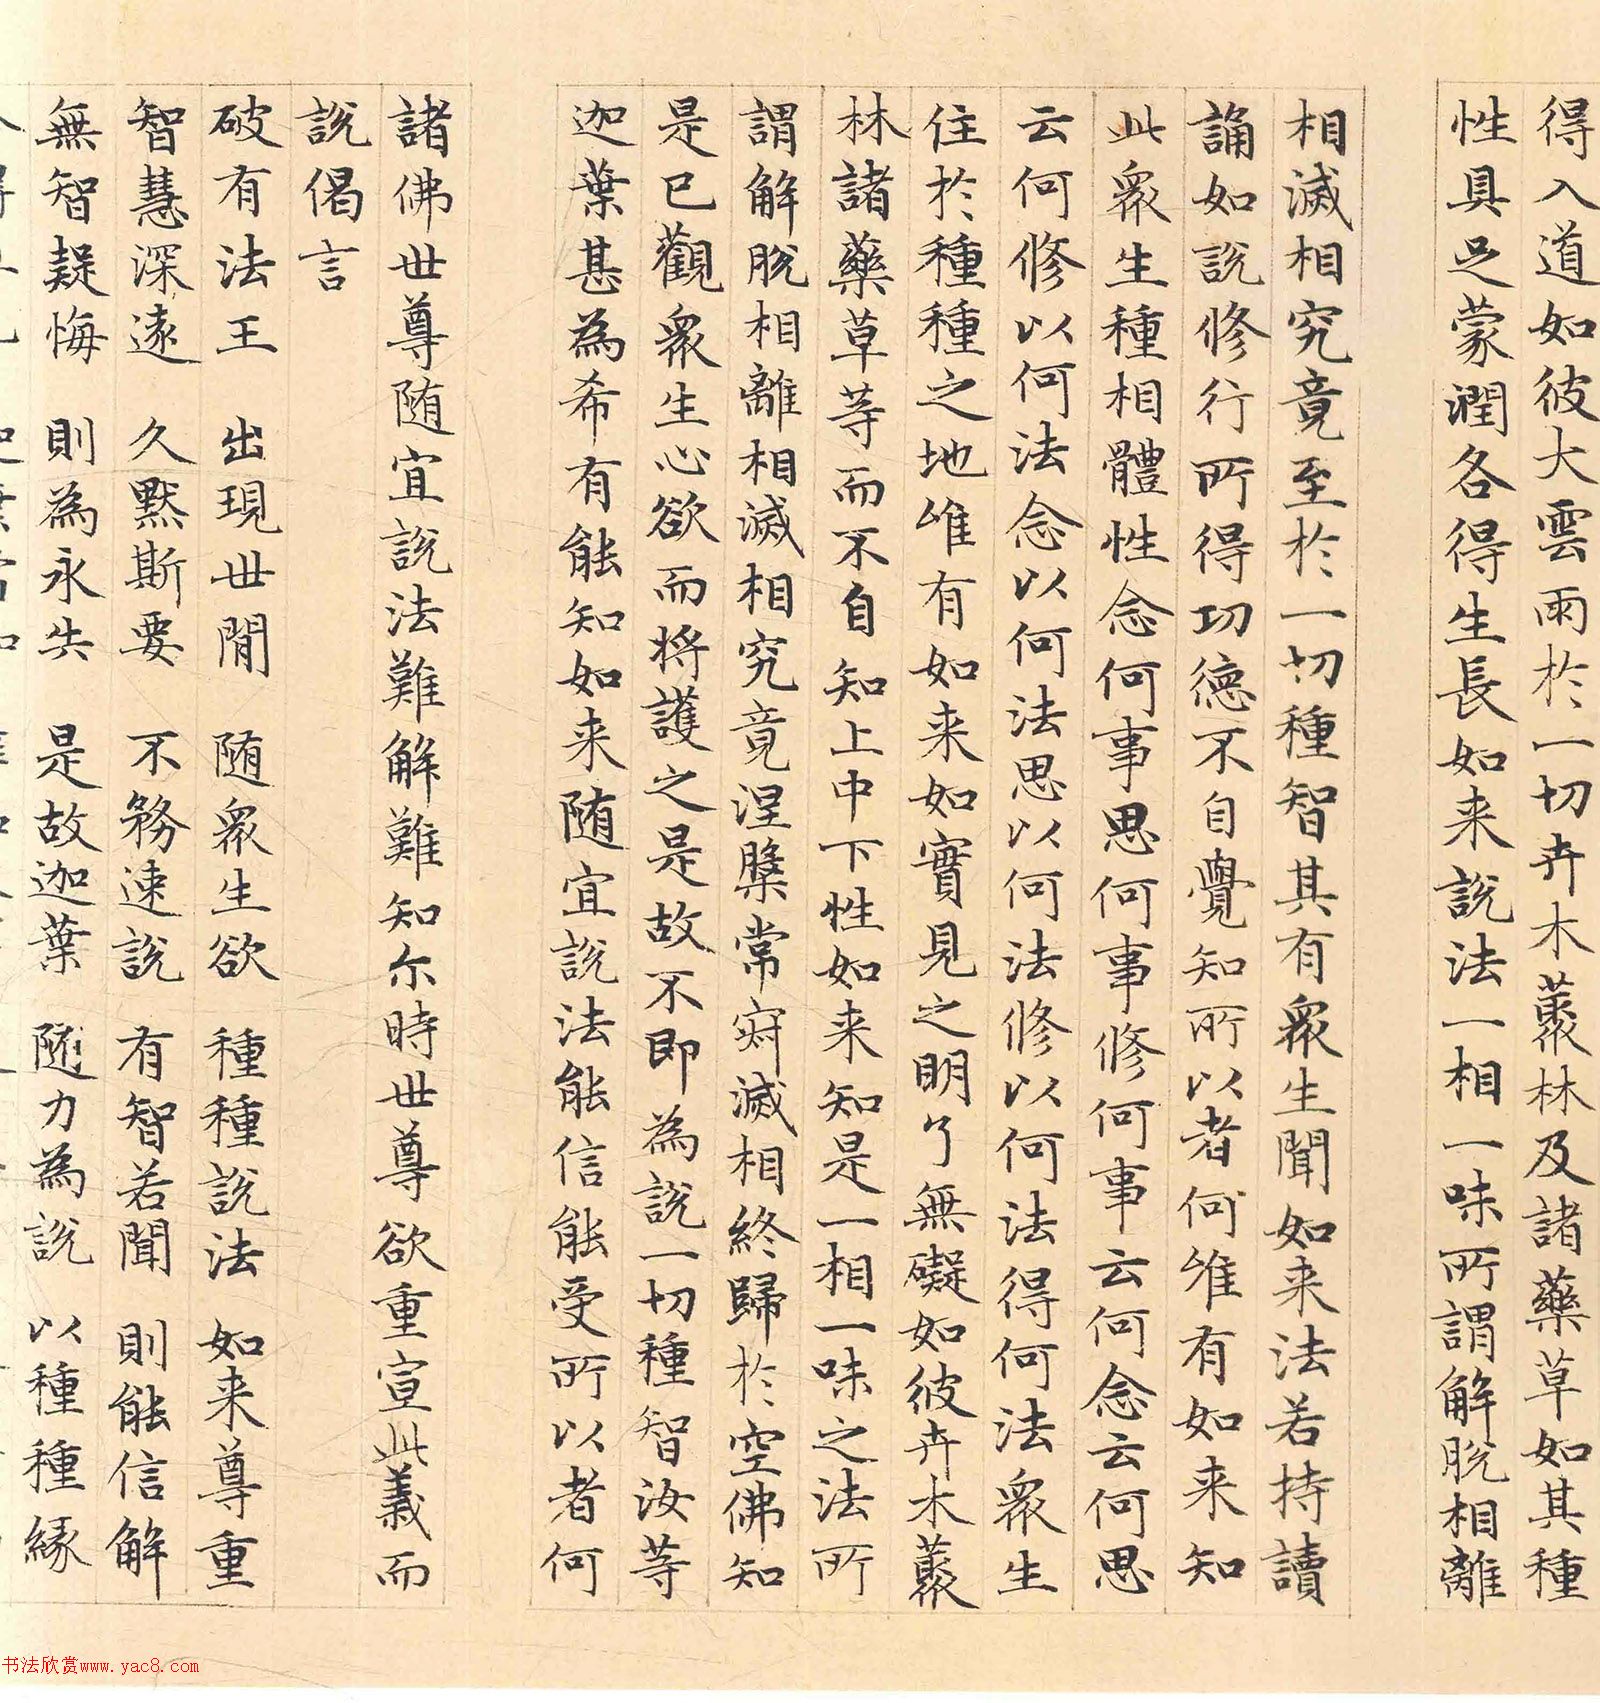 得入道如彼大雲雨於一切卉木藂林及諸藥草如其種
性具足蒙潤各得生長如来說法一相一味所謂解脫相離
相滅相究竟至於一切種智其有眾生聞如来法若持讀
誦如說修行所得功德不自覺知所以者何唯有如来知
此眾生種相體性念何事思何事修何事云何念云何思
云何修以何法念以何法思以何法修以何法得何法眾生
住於種種之地唯有如来如實見之明了無礙如彼卉木藂
林諸藥草等而不自知上中下性如来知是一相一味之法所
謂解脫相離相滅相究竟涅槃常寂滅相終歸於空佛知
是已觀眾生心欲而將護之是故不即為說一切種智汝等
迦葉甚為希有能知如来随宜說法能信能受所以者何
諸佛世尊随宜說法難解難知尔時世尊欲重宣此義而
說偈言
破有法王 出現世間 随眾生欲 種種說法 如来尊重
智慧深遠 久默斯要 不務速說 有智若聞 則能信解
無智疑悔 則為永失 是故迦葉 随力為說 以種種緣
书法欣赏www.yac8.com